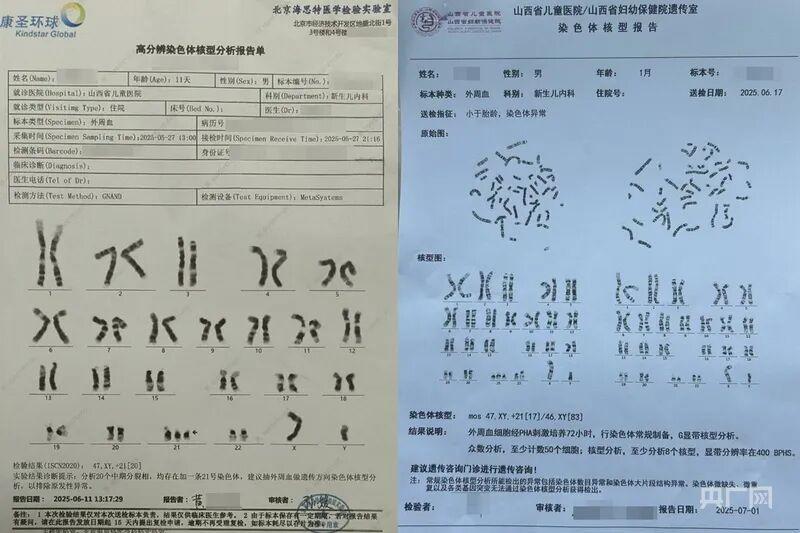 康圣环球
Kindstar Global
北京海思特医学检验实验室
北京市经济技术开发区地盛北街1号
3号楼和4号楼
高分辨染色体核型分析报告单
姓名(Name):
年龄(Age): 11天
性别(Sex): 男
标本编号(No.):
就诊医院(Hospital): 山西省儿童医院
科别(Department): 新生儿内科
就诊类型(Visiting Type): 住院
床号(Bed No.):
医生(Dr):
标本类型(Specimen): 外周血
病历号
采集时间(Specimen Sampling Time): 2025-05-27 13:00
接检时间(Specimen Receive Time): 2025-05-27 21:16
检测条码(Barcode):
身份证号
临床诊断(Diagnosis):
医生电话(Tel of Dr):
检测方法(Test Method): GNAND
检测设备(Test Equipment): MetaSystems
1 2 3 4 5
6 7 8 9 10 11 12
13 14 15 16 17 18
19 20 21 22 X Y
检验结果(ISCN2020): 47,XY,+21[20]
实验结果诊断提示: 分析20个中期分裂相,均存在加一条21号染色体,建议抽外周血做遗传方向染色体核型分析,
以排除原发性异常。
报告日期: 2025-06-11 13:17:29
报告者: 黄
审核者:
备注: 1 本次检验结果仅对本次送检标本负责,结果仅供临床医生参考。
山西省儿童医院/山西省妇幼保健院遗传室
染色体核型报告
山西省儿童医院
山西省妇幼保健院
姓名:
性别: 男
年龄: 1月
标本号:
标本种类: 外周血
科别: 新生儿内科
住院号:
送检日期: 2025.06.17
送检指征: 小于胎龄,染色体异常
原始图:
核型图:
染色体核型: mos 47,XY,+21[17]/46,XY[83]
结果说明: 外周血细胞经PHA刺激培养72小时,行染色体常规制备,G显带核型分析。
众数分析,至少计数50个细胞;核型分析,至少分析8个核型,显带分辨率在400 BPHS。
建议遗传咨询门诊进行遗传咨询!
注: 常规染色体核型分析所能检出的异常包括染色体数目异常和染色体大片段结构异常,染色体微缺失、微重
复以及各类基因突变无法通过染色体核型分析获得检出。
检验者:
审核者:
报告日期: 2025-07-01
央广网